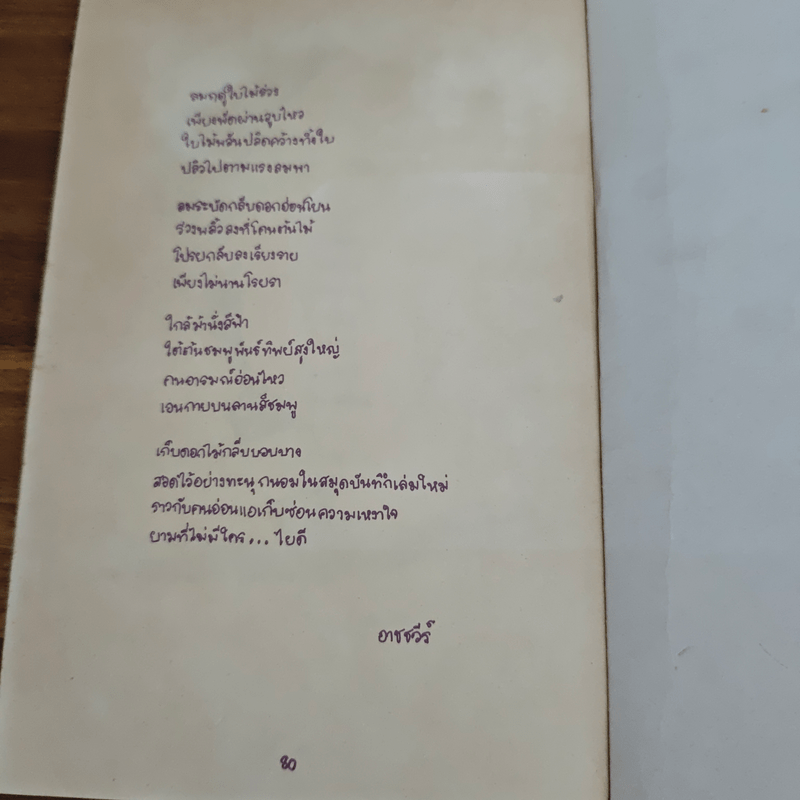 ลมฤดูใบไม้ร่วง
เพียงพัดผ่านวูบไหว
ใบไม้พลันปลิดคว้างทิ้งใบ
ปลิวไปตามแรงลมพา
ลมระบัดกลีบดอกอ่อนโยน
ร่วงพลิ้วลงที่โคนต้นไม้
โปรยกลีบลงเรียงราย
เพียงไม่นานโรยรา
ใกล้ม้านั่งสีฟ้า
ใต้ต้นชมพูพันธ์ทิพย์สูงใหญ่
คนอารมณ์อ่อนไหว
เอนกายบนลานสีชมพู
เก็บดอกไม้กลีบบอบบาง
สอดไว้อย่างทะนุถนอมในสมุดบันทึกเล่มใหม่
ราวกับคนอ่อนแอเก็บซ่อนความเหงาใจ
ยามที่ไม่มีใคร... ไยดี
อาชชวีร์
80